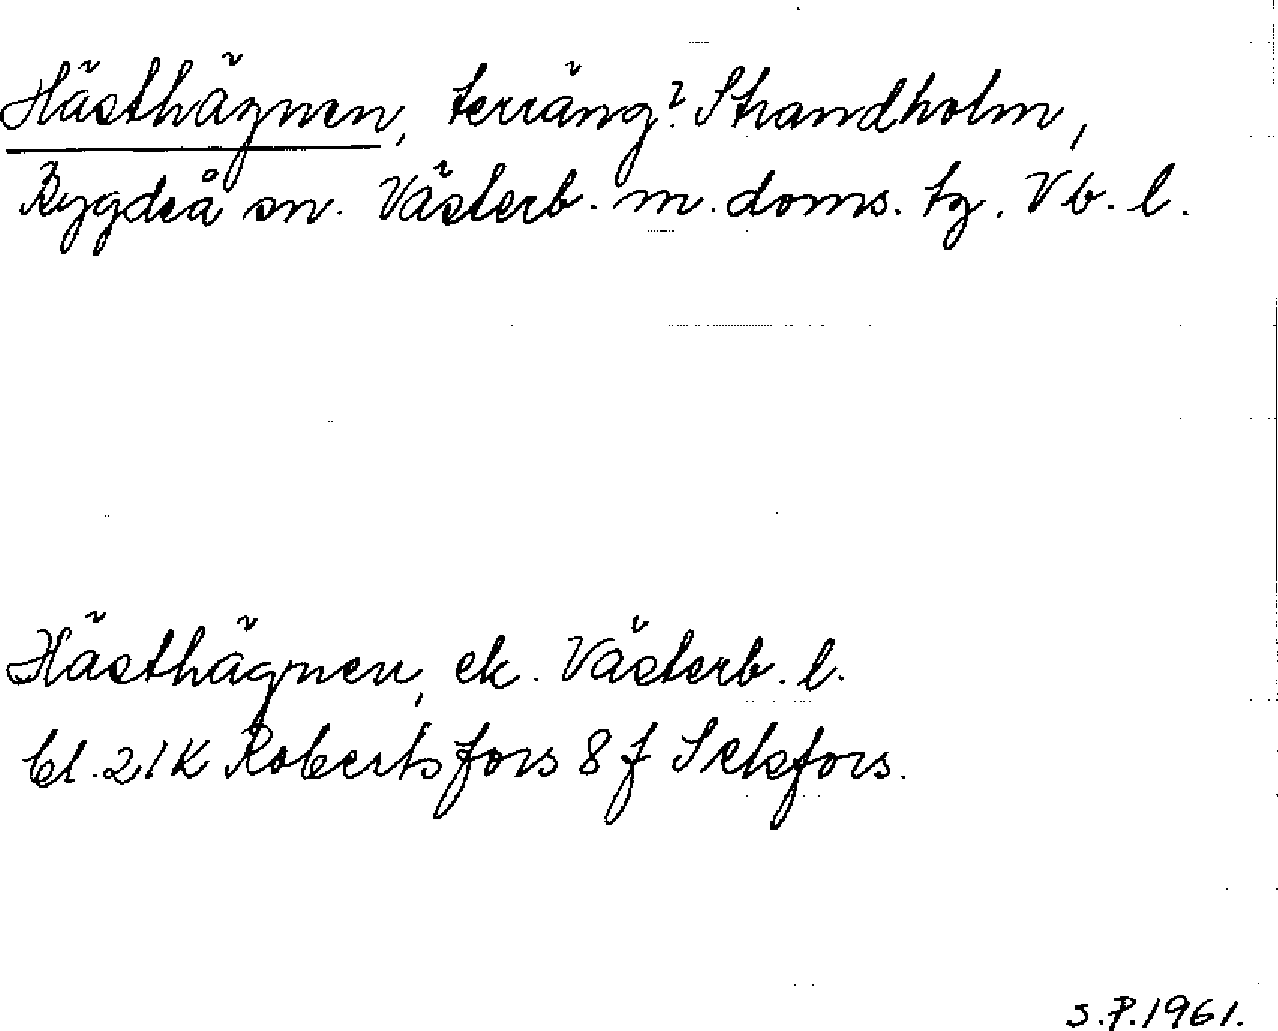 Hästhägnen, terräng? Strandholm,
Bygdeå sn. Västerb. m. doms. tg. Vb. l.
Hästhägnen, ek. Västerb. l.
bl. 21K Robertsfors 8f Sikfors.
S.P. 1961.